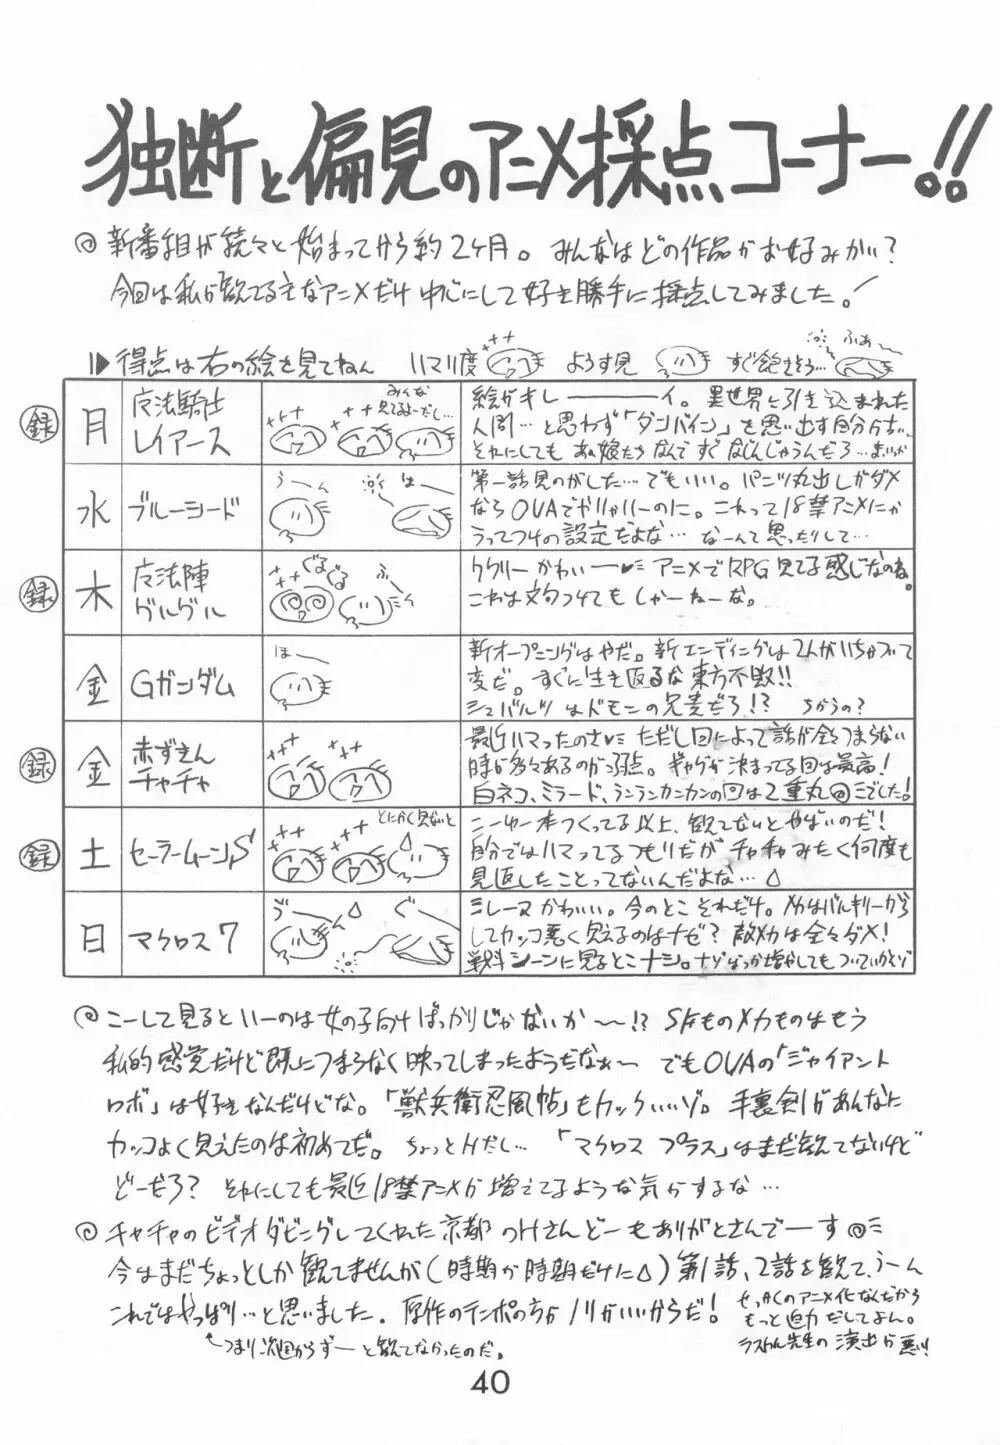 独断と偏見のアニメ採点コーナー!!
◎新番組が続々と始まってから約2ヶ月。みんなはどの作品がお好みかい?
今回は私が観てる主なアニメだけ中心にして好き勝手に採点してみました!
得点は右の絵を見てねん ハマリ度 ようす見 すぐ飽きそう… ふぁ〜
録 月 魔法騎士レイアース
みんな見てるよーだし…
絵がキレーーーイ。異世界に引き込まれた
人間…と思わず「ダンバイン」を思い出す自分
それにしてもあの娘たちなんですぐなじんじゃうんだろ…まいっか
水 ブルーシード
うーん はー
第一話見のがした…でもいい。パンツ丸出しがダメ
ならOVAでやりゃいーのに。これって18禁アニメにか
うってつけの設定だよな…なーんて思ったりして…
録 木 魔法陣グルグル
ぐるぐる ふー
ククリーかわいー♥ アニメでRPG見てる感じなのね。
これは文句つけてもしゃーねーな。
金 Gガンダム
ほー
新オープニングはやだ。新エンディングは2人がいちゃついて
変だ。すぐに生き返るな東方不敗!!
シュバルツはドモンの兄貴だろ!? ちがうの?
録 金 赤ずきんチャチャ
最近ハマったのさ♥ ただし回によって話が全々つまらない
時が多々あるのが弱点。ギャグが決まってる回は最高!
白ネコ、ミラード、ランランカンカンの回は2重丸◎でした!
録 土 セーラームーンS
とにかく見ないと
こーゆー本つくってる以上、観てないとやばいのだ!
自分ではハマってるつもりだがチャチャみたく何度も
見返したことってないんだよな…
日 マクロス7
ぶー ぐー
ミレーヌかわいい。今のとこそれだけ。メカはバルキリーから
してカッコ悪く見えるのはナゼ? 敵メカは全々ダメ!
戦闘シーンに見るとこナシ。ナゾばっか増やしてもついていかどゾ
◎こーして見るといーのは女の子向けばっかりじゃないか〜!? SFものメカものはもう
私的感覚だけど既につまらなく映ってしまったようだなぁ〜 でもOVAの「ジャイアント
ロボ」は好きなんだけどな。「獣兵衛忍風帖」もカッコいいゾ。手裏剣があんなに
カッコよく見えたのは初めてだ。ちょっとHだし… 「マクロスプラス」はまだ観てないけど
どーだろ? それにしても最近18禁アニメが増えてるような気がするな…
◎チャチャのビデオダビングしてくれた京都のHさんどーもありがとさんでーす◎
今はまだちょっとしか観てませんが(時期が時期だけに)第1話、2話を観て、うーん
これではやっぱり…と思いました。原作のテンポの方がノリがいいからだ!
せっかくのアニメ化なんだから
もっと迫力だしてよん。
演出が悪い!
つまり次回からずーっと観てなかったのだ。
40